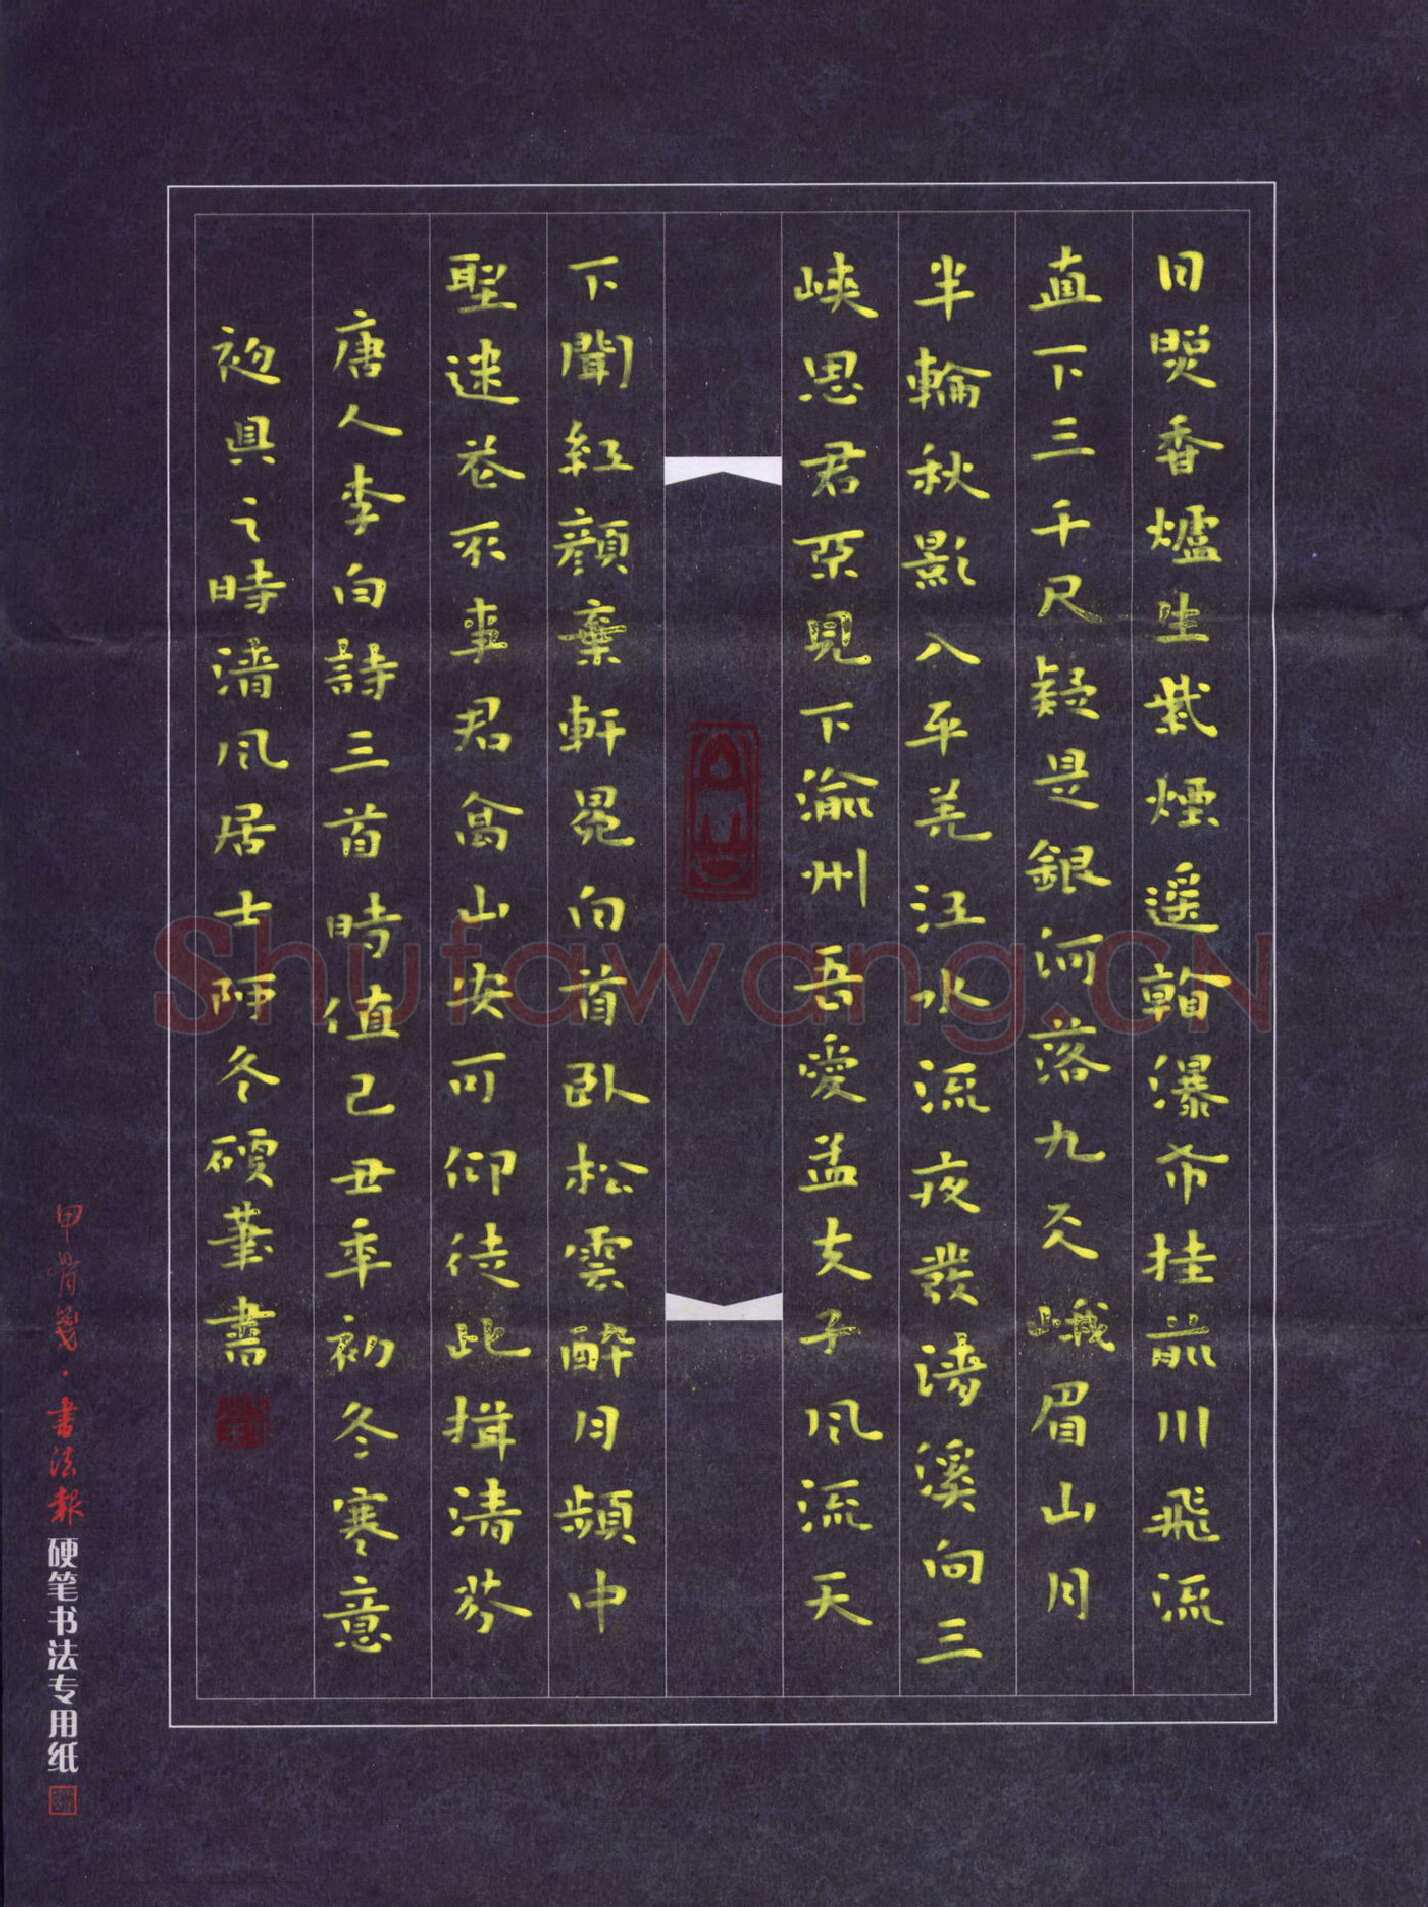 日照香爐生紫煙遥看瀑布挂前川飛流
直下三千尺疑是銀河落九天峨眉山月
半輪秋影入平羌江水流夜發清溪向三
峽思君不見下渝州吾愛孟夫子風流天
下聞紅顔棄軒冕白首臥松雲醉月頻中
聖迷花不事君高山安可仰徒此揖清芬
唐人李白詩三首時值己丑年初冬寒意
初具之時清風居士阿冬硬筆書
甲骨箋·書法報硬笔书法专用纸
Shufawang.CN